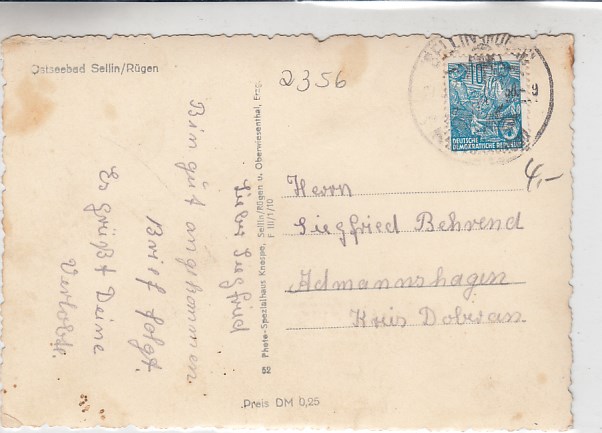 Ostseebad Sellin/Rügen
2356
SELLIN
10
DEUTSCHE
DEMOKRATISCHE REPUBLIK
5
4,-
Lieber Siegfried
Bin gut angekommen.
Brief folgt.
Es grüßt Deine
Verlobte.
Photo-Spezialhaus Knospe, Sellin/Rügen u. Oberwiesenthal, Erzg.
F III/1/10
52
Herrn
Siegfried Behrend
Admannshagen
Kreis Doberan
Preis DM 0,25